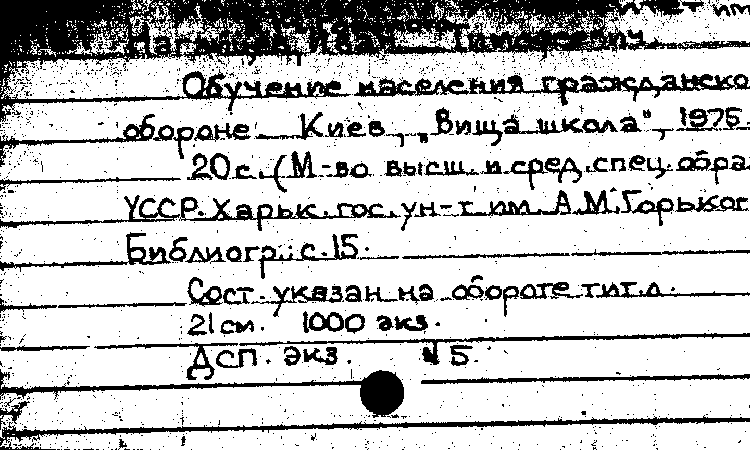 Иван Тимофеевич.
Обучение населения гражданско
обороне Киев, „Вища школа", 1975.
20с. (М-во высш. и сред. спец. обра
УССР. Харьк. гос. ун-т им. А.М. Горьког
Библиогр.: с. 15.
Сост. указан на обороте тит. л.
21 см. 1000 экз.
ДСП. экз. № 5.